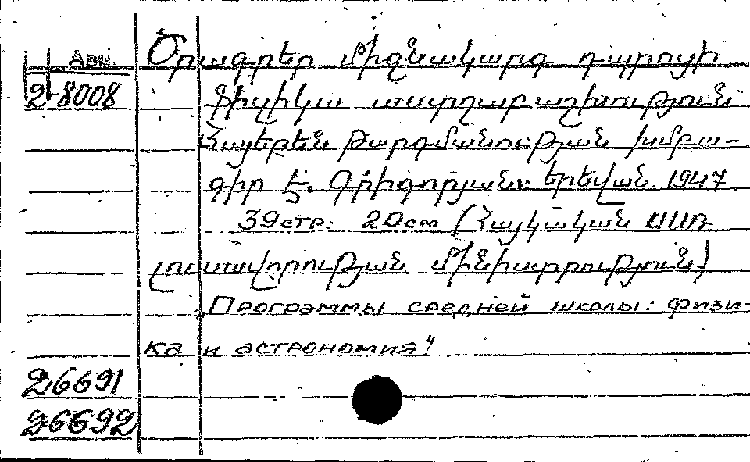 Арм.
2-8008
Ծրագրեր միջնակարգ դպրոցի
Ֆիզիկա աստղաբաշխություն
Հայերեն թարգմանության խմբա-
գիր Է. Գրիգորյան: Երևան. 1947
39стр. 20см (Հայկական ՍՍՌ
լուսավորության մինիստրություն)
„Программы средней школы: физи-
ка и астрономия“
26691
26692